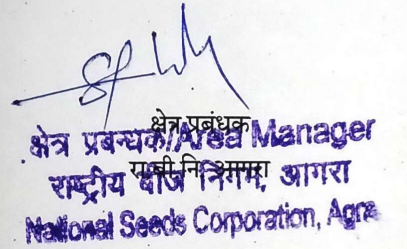 क्षेत्र प्रबंधक
क्षेत्र प्रबन्धक/Area Manager
रा.बी.नि. आगरा
राष्ट्रीय बीज निगम, आगरा
National Seeds Corporation, Agra